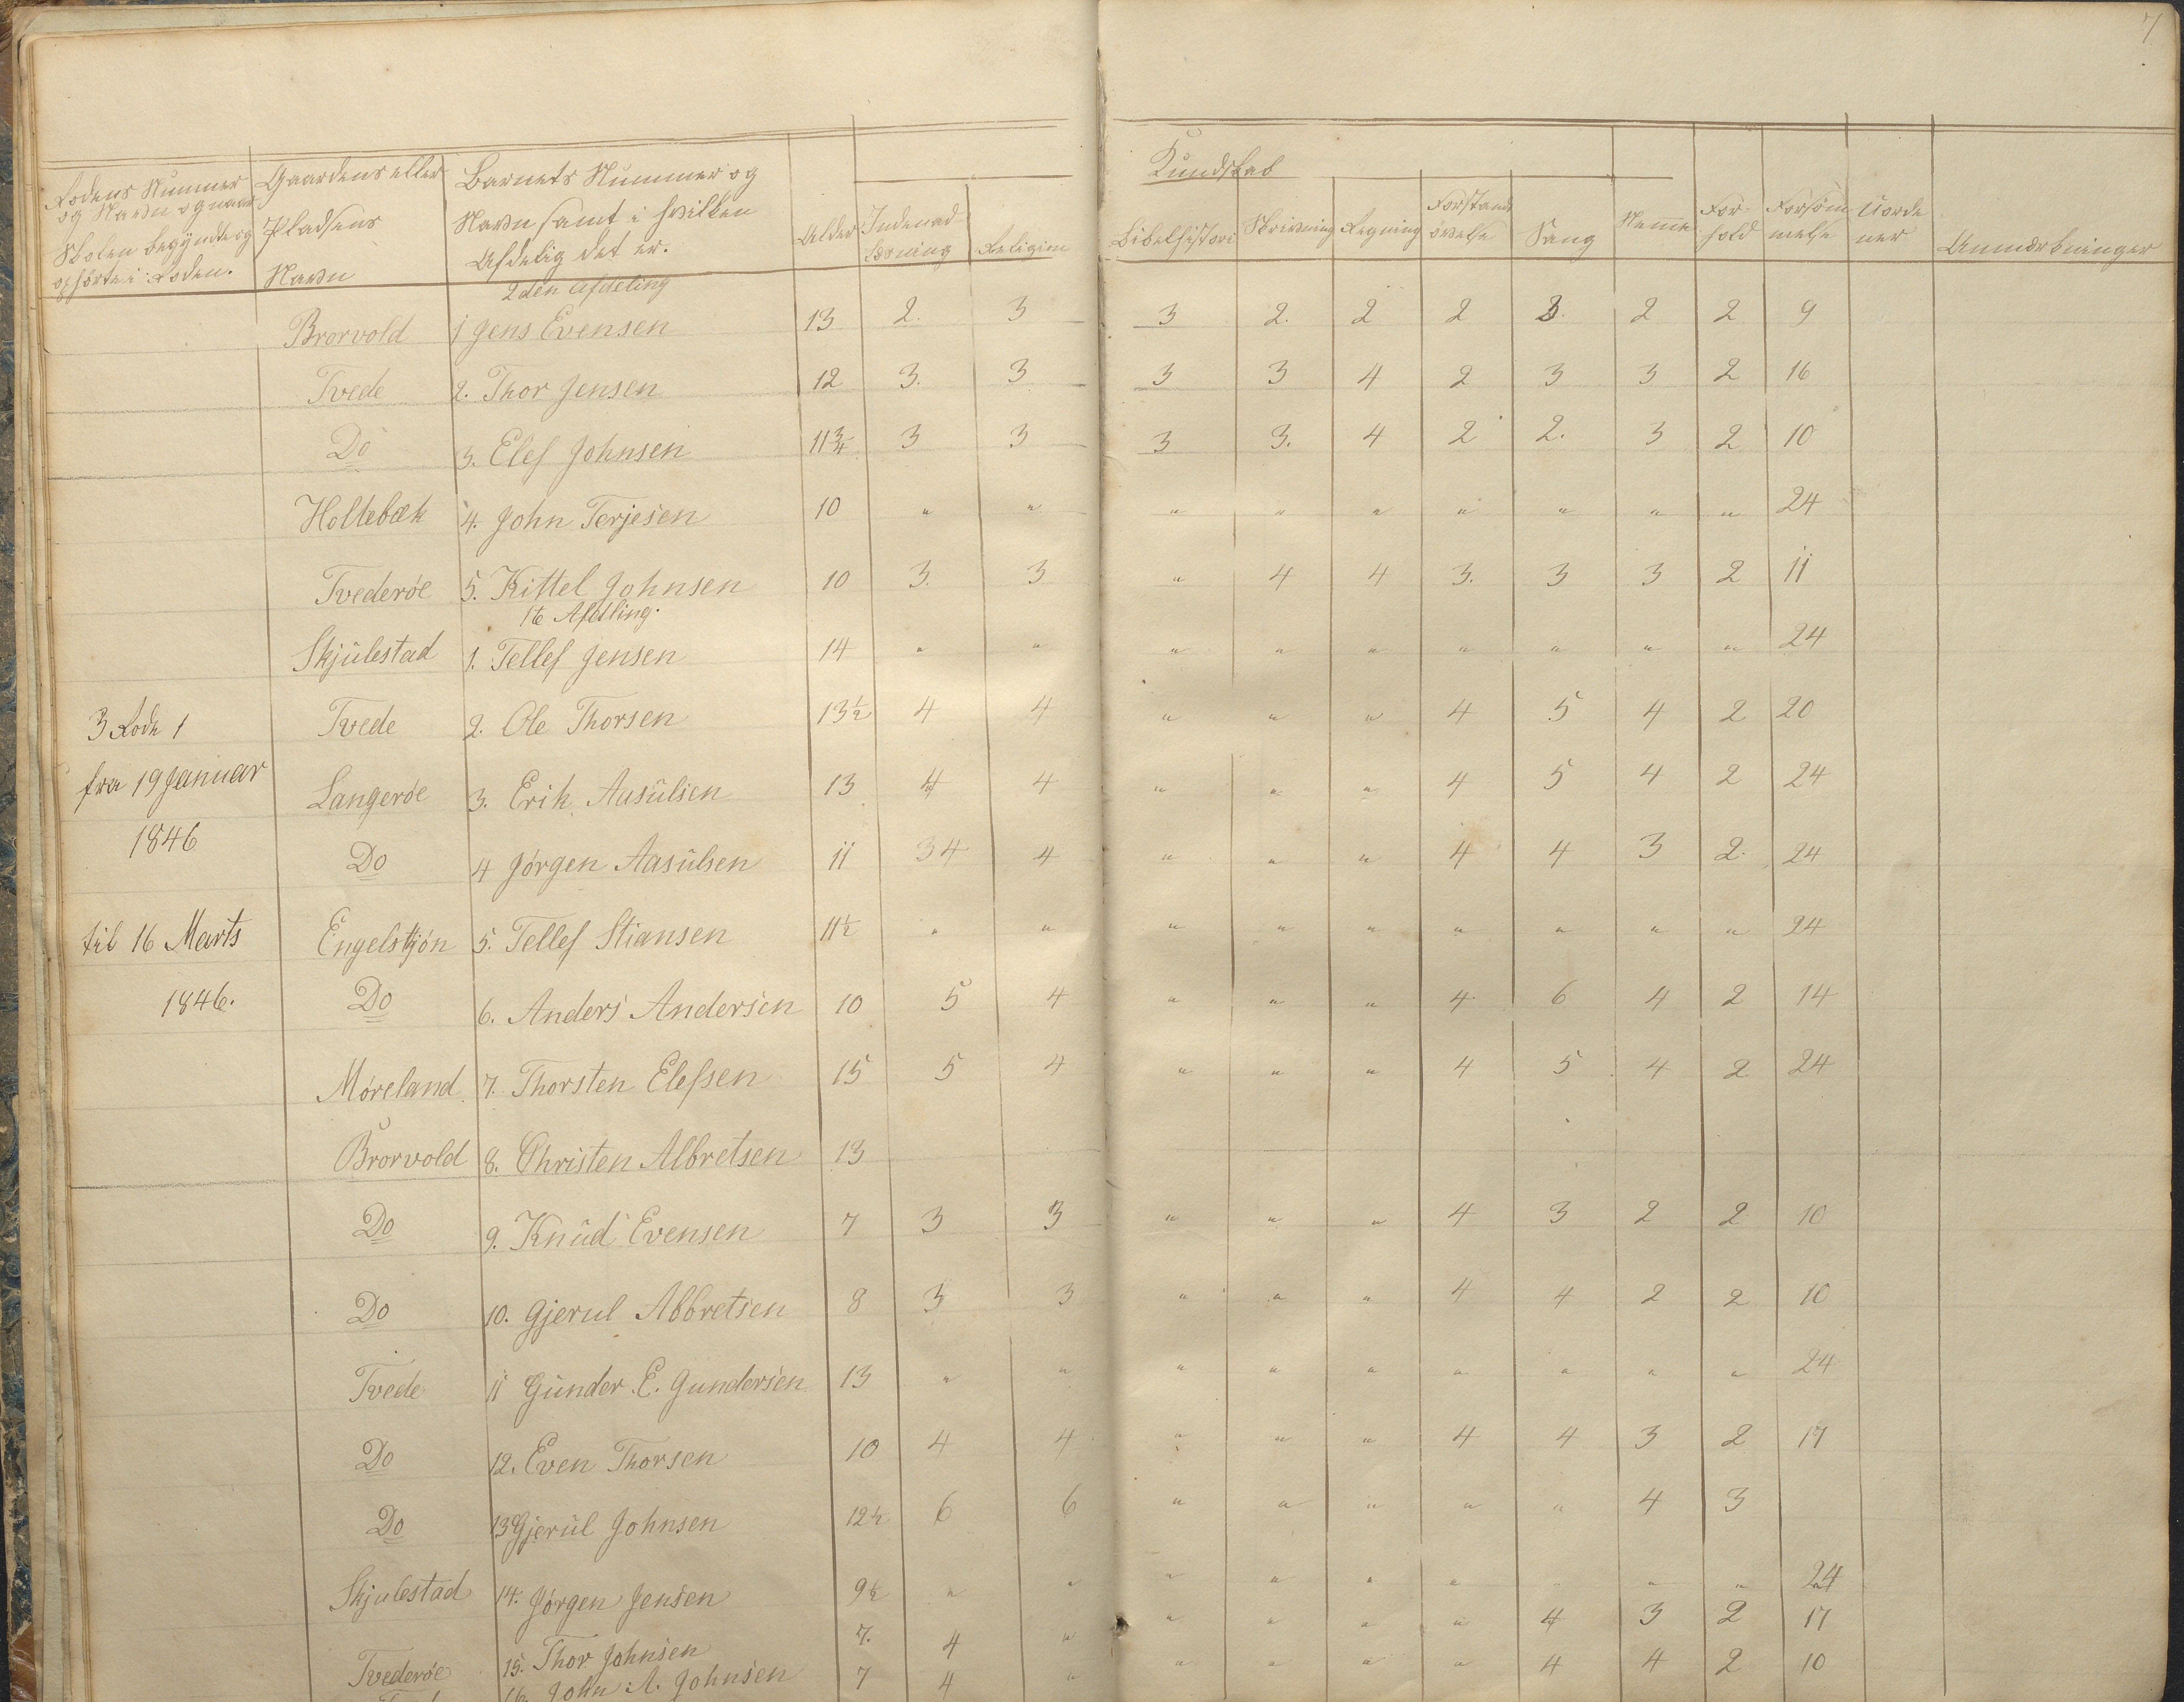 7
Rodens Nummer og Navn og naar Skolen begyndte og ophørte i Roden.
Gaardens eller Pladsens Navn
Barnets Nummer og Navn samt i hvilken Afdelig det er.
Alder
Kundskab
Indenad-læsning
Religion
Bibelhistori
Skrivning
Regning
Forstands øvelse
Sang
Nemme
For-hold
Forsøm melse
Uorde ner
Anmærkninger
2den Afdeling
Brorvold 1 Jens Evensen 13 2. 3 3 2. 2 2 3. 2 2 9
Tvede 2. Thor Jensen 12 3. 3 3 3 4 2 3 3 2 16
Do 3. Elef Johnsen 11¾ 3 3 3 3. 4 2 2. 3 2 10
Holtebæk 4. John Terjesen 10 " " " " " " " " " 24
Tvederøe 5. Kittel Johnsen 10 3. 3 " 4 4 3. 3 3 2 11
1te Afdling.
Skjulestad 1. Tellef Jensen 14 " " " " " " " " " 24
3 Rode 1 Tvede 2. Ole Thorsen 13½ 4 4 " " " 4 5 4 2 20
fra 19 Januar Langerøe 3. Erik Aasulsen 13 4 4 " " " 4 5 4 2 24
1846 Do 4 Jørgen Aasulsen 11 34 4 " " " 4 4 3 2. 24
til 16 Marts Engelstjøn 5. Tellef Stiansen 11½ " " " " " " " " " 24
1846. Do 6. Anders Andersen 10 5 4 " " " 4 6 4 2 14
Møreland 7. Thorsten Elefsen 15 5 4 " " " 4 5 4 2 24
Brorvold 8. Christen Albretsen 13
Do 9. Knud Evensen 7 3 3 " " " 4 3 2 2 10
Do 10. Gjerul Abbretsen 8 3 3 " " " 4 4 2 2 10
Tvede 11 Gunder E. Gundersen 13 " " " " " " " " " 24
Do 12. Even Thorsen 10 4 4 " " " 4 4 3 2 17
Do 13 Gjerul Johnsen 12½ 6 6 " " " " " 4 3
Skjulestad 14. Jørgen Jensen 9½ " " " " " " " " 24
Tvederøe 15. Thor Johnsen 7. 4 " " " " " 4 3 2 17
16. John A. Johnsen 7 4 " " " " " 4 4 2 10